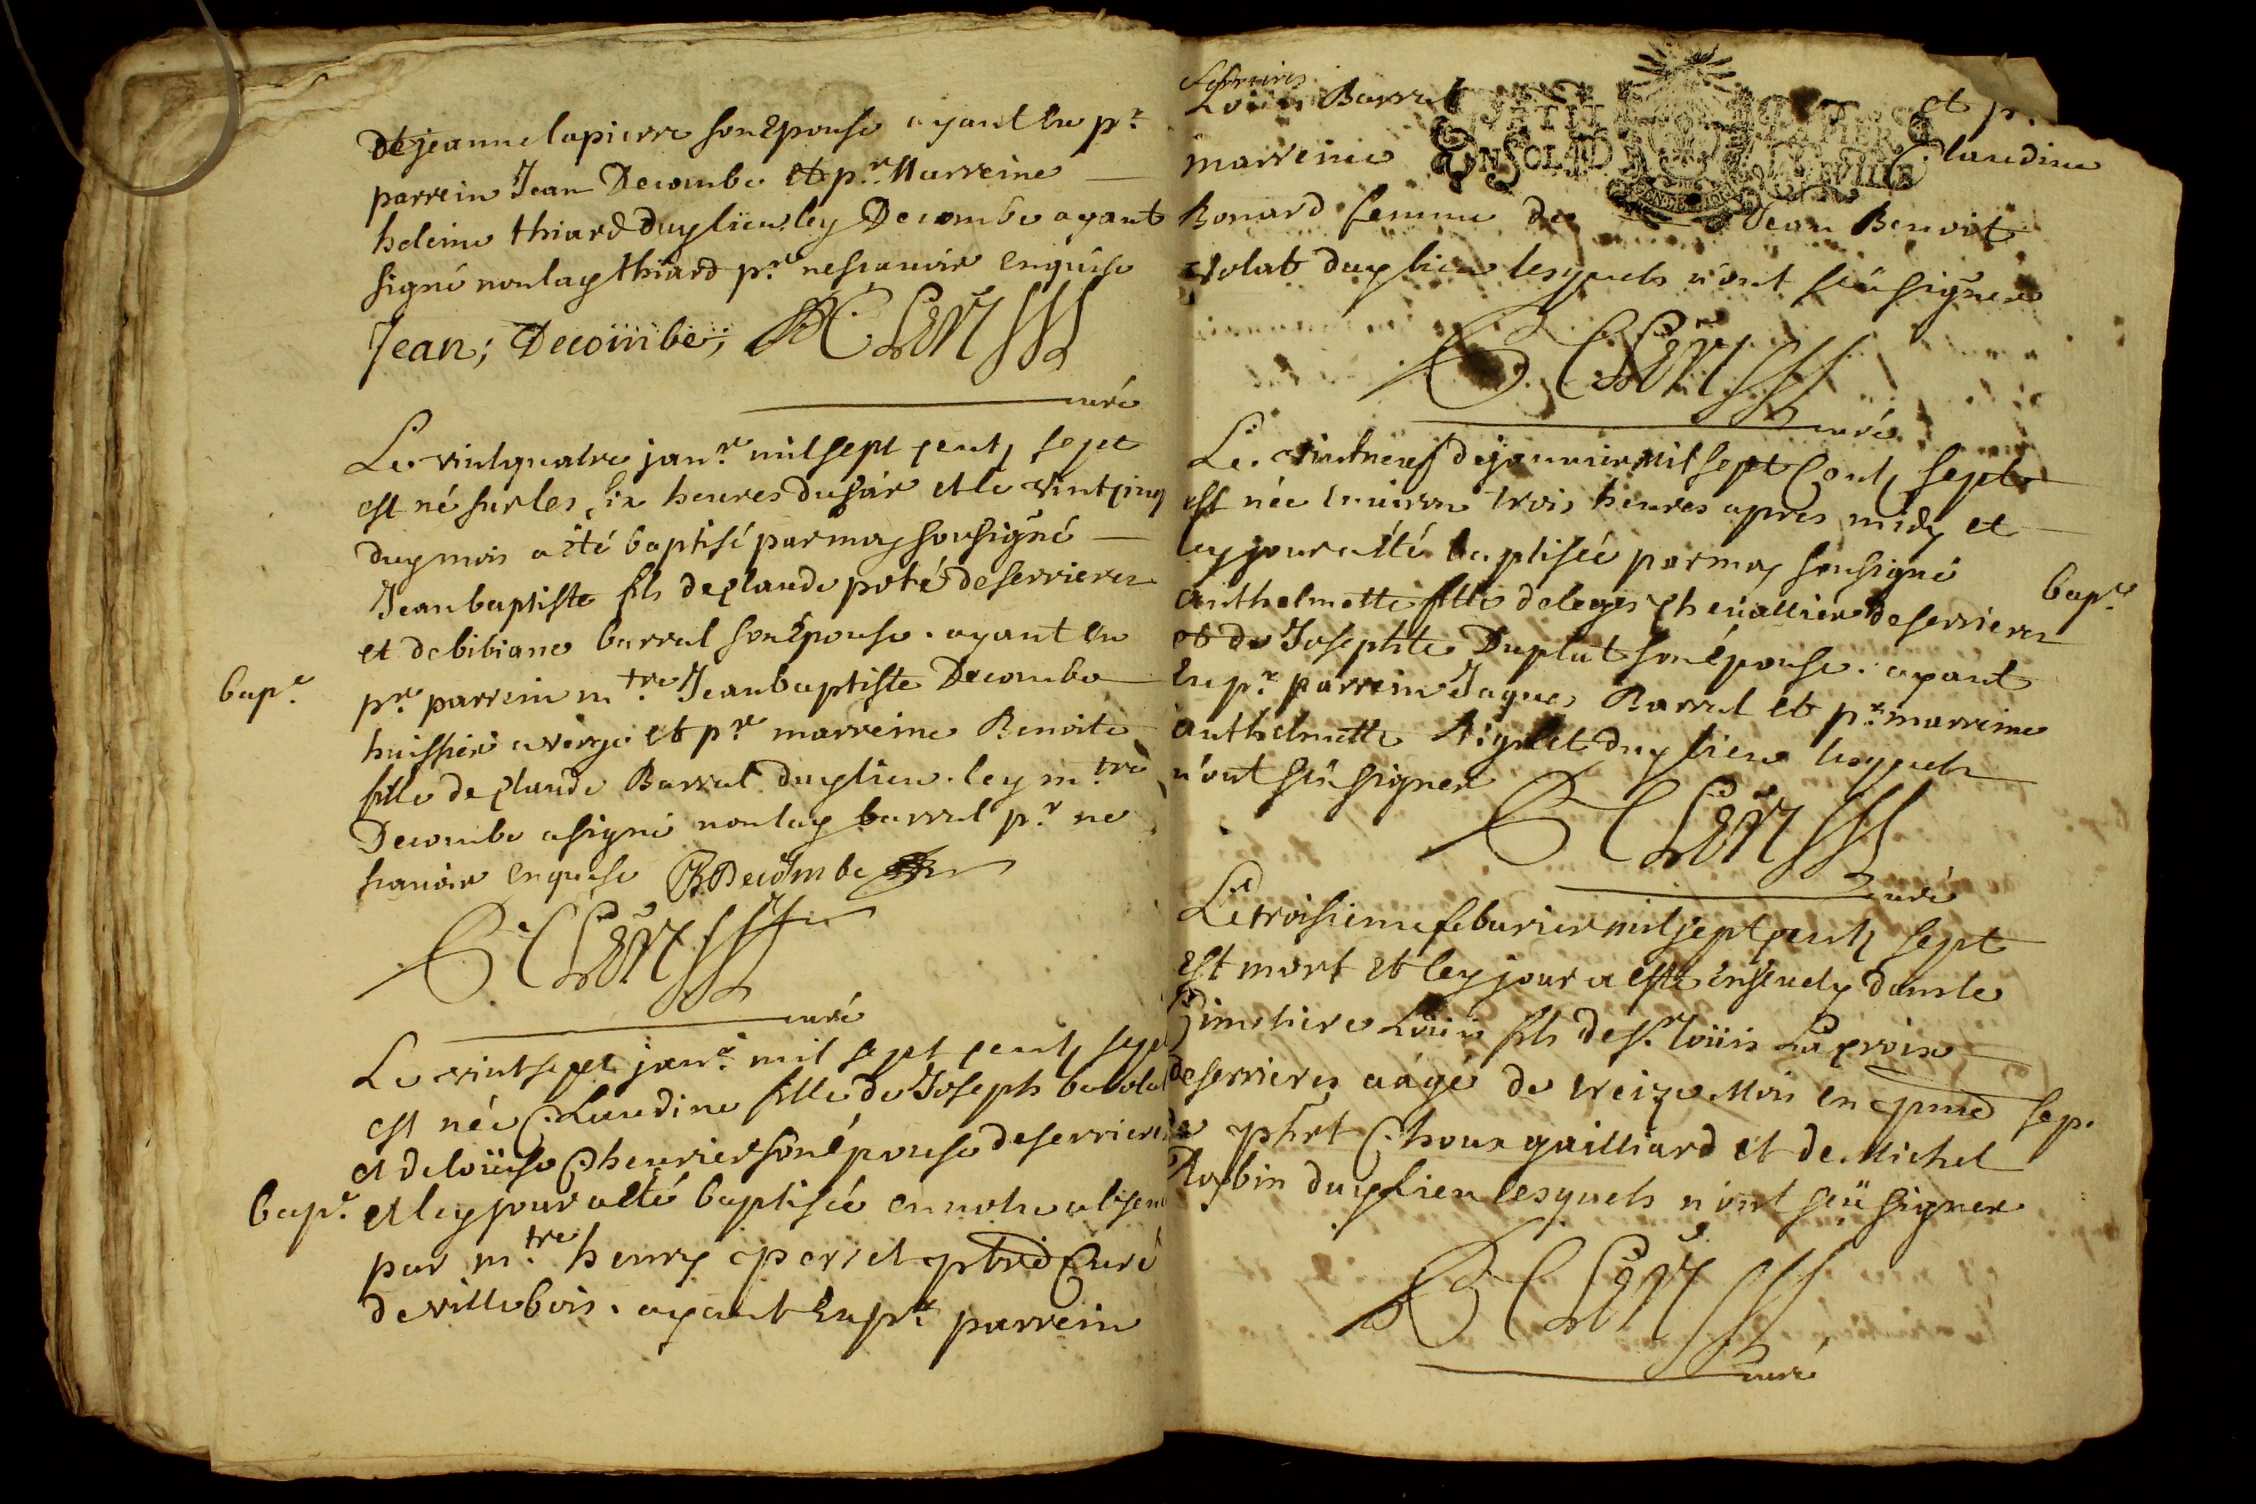 de jeanne lapierre son Epouse ayant Eu pr
parrein Jean Decombe et pr Marreine
heleine thiard duy lieu. ley Decombe ayant
signé non lay thiard pr ne scauoir enquise
Jean; Decombe;
curé
Le vintquatre janr mil sept centz sept
est né sur les six heures du soir et le vintcinq
duy mois a été baptisé par moy sousigné
Jean baptiste fils de claude poté de serrieres
et de bibiane barral son Epouse. ayant eu
bapt
pr parrein mtre Jean baptiste Decombe
huissier a verge et pr marreine Benoite
fille de claude Barral duy lieu. ley mtre
Decombe a signé non lay barral pr ne
scauoir enquise JB Decombe
curé
Le vint sept janr mil sept centz sept
est née Claudine fille de Joseph
et de loüise Cheurier son épouse de serrieres
bapt
et ley jour a été baptisée en notre absence
par mtre henry perret ptre Curé
de villebois. ayant Eu pr parrein
serrieres
Loüis Barral et pr
marreine Claudine
Bonard femme de Jean Benoit
duy lieu lesquels n'ont sçü signer
curé
Le vintneuf de januier mil sept Centz sept
est née enuiron trois heures apres midy et
ley jour a été baptisée par moy sousigné
bapt
anthelmette fille de leger cheuallier de serrieres
et de Josephte Duplat son épouse. ayant
Eu pr parrein Jaques Barral et pr marreine
anthelmette duy lieu lesquels
n'ont sçü signer
curé
Le troisieme feburier mil sept centz sept
est mort et ley jour a esté enseuely dans le
cimetiere Loüis fils de sr loüis Lacroix
de serrieres aagé de treize Mois en
sep.
Choux gailliard et de Michel
Robin duy lieu lesquels n'ont sçü signer
curé